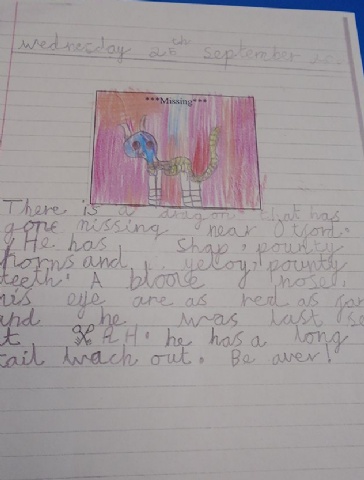 Wednesday 25th September
***Missing***
There is a dragon that has
gone missing near
He has shap, pounty
horns and yeloy, pounty
teeth. A bloole nose,
his eye are as red as
and he was last se
he has a long
tail wach out. Be aver!